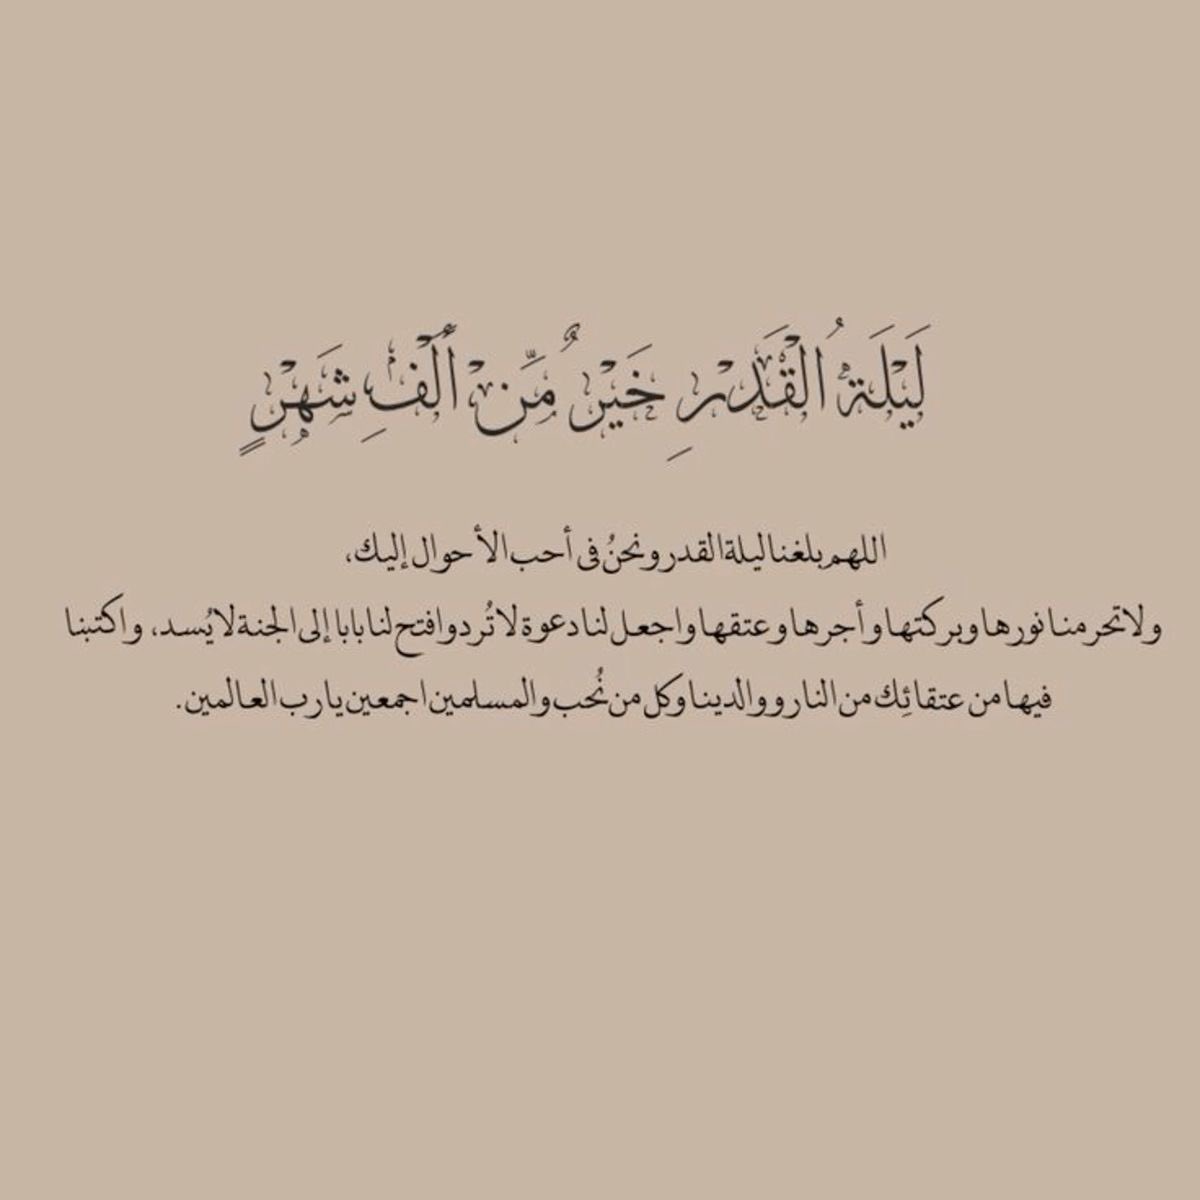 لَيْلَةُ الْقَدْرِ خَيْرٌ مِّنْ أَلْفِ شَهْرٍ
اللهم بلغنا ليلة القدر ونحنُ في أحب الأحوال إليك،
ولا تحرمنا نورها وبركتها وأجرها وعتقها واجعل لنا دعوة لا تُرد وافتح لنا بابا إلى الجنة لا يُسد، واكتبنا
فيها من عتقائِك من النار ووالدينا وكل من نُحب والمسلمين اجمعين يارب العالمين.